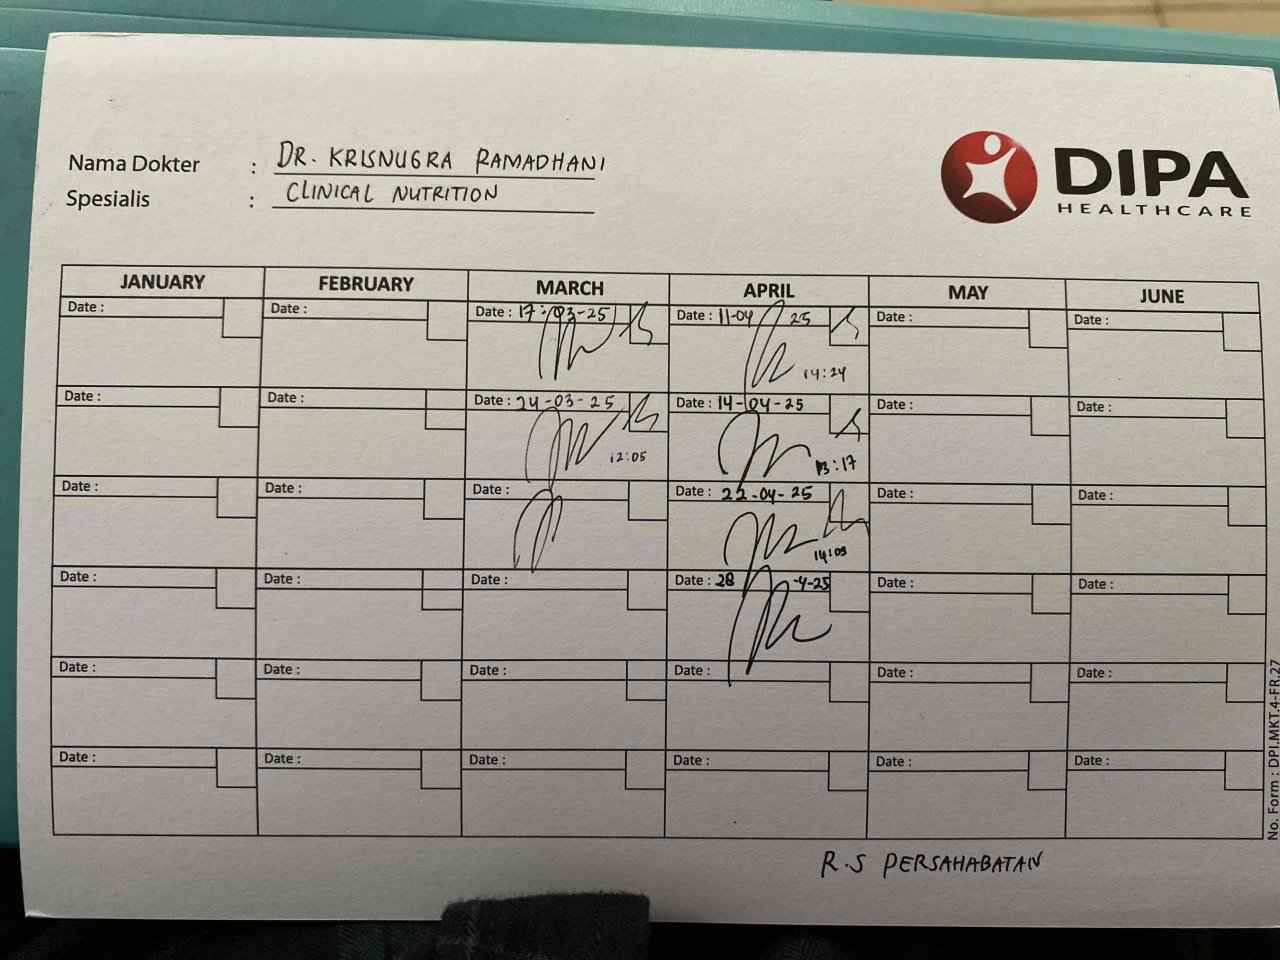 Nama Dokter : DR. KRISNUGRA RAMADHANI
Spesialis : CLINICAL NUTRITION
DIPA
HEALTHCARE
JANUARY FEBRUARY MARCH APRIL MAY JUNE
Date : Date : Date : 17-03-25 Date : 11-04 25 Date : Date :
14:24
Date : Date : Date : 24-03-25 Date : 14-04-25 Date : Date :
12:05 13:17
Date : Date : Date : Date : 22-04-25 Date : Date :
14:09
Date : Date : Date : Date : 28 -4-25 Date : Date :
Date : Date : Date : Date : Date : Date :
Date : Date : Date : Date : Date : Date :
No. Form : DPI.MKT.4-FR.27
R.S PERSAHABATAN